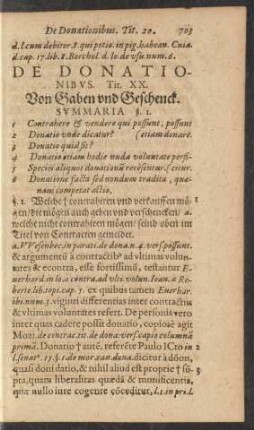 De Donationibus. Tit. 20. 703
d.l.cum debitor.8.qui potio. in pig. habean. Cuia.
d.cap.17.lib.8.Borchol.d.lo.de usu.num.6.
DE DONATIO-
NIBVS. Tit. XX.
Von Gaben vnd Geschenck.
SVMMARIA §. 1.
1 Contrahere & vendere qui possunt, possunt
2 Donatio vnde dicatur? (etiam donare.
3 Donatio quid sit?
4 Donatio etiam hodie nuda voluntate perfi-
5 Species aliquot donationũ recẽsentur. (citur.
6 Donatione facta sed nondum tradita, quæ-
nam competat actio.
§.1. Welche † contrahiren vnd verkauffen mö-
gen/ die mögen auch geben vnd verschencken/ a.
welche nicht contrahiren mögen/ seind oben im
Titel von Contracten gemeldet.
a. VVesenbec. in parati. de dona. n.4. vers. possunt.
& argumentũ à contractib⁹ ad vltimas volun-
tates & econtra, esse fortissimũ, testantur E-
uerhard in lo. a contra. ad vlti. volun. Ioan. a Re-
berte lib. topi. cap. 5. ex quibus tamen Euerhar.
ibi. num.3. viginti differentias inter contractus
& vltimas voluntates refert. De personis vero
inter quas cadere possit donatio, copiosè agit
Mozi. de contrac. tit. de dona. vers. capio columnã
primã. Donatio † autẽ. referẽte Paulo ICto in 2
l. senat⁹. 35. §.1. de mor. cau. dona. dicitur à δῶρον,
quasi doni datio, & nihil aliud est proprie † su- 3
pta, quam liberalitas quædã & munificentia,
quæ nullo iure cogente cōceditur, l.1. in pr. l.